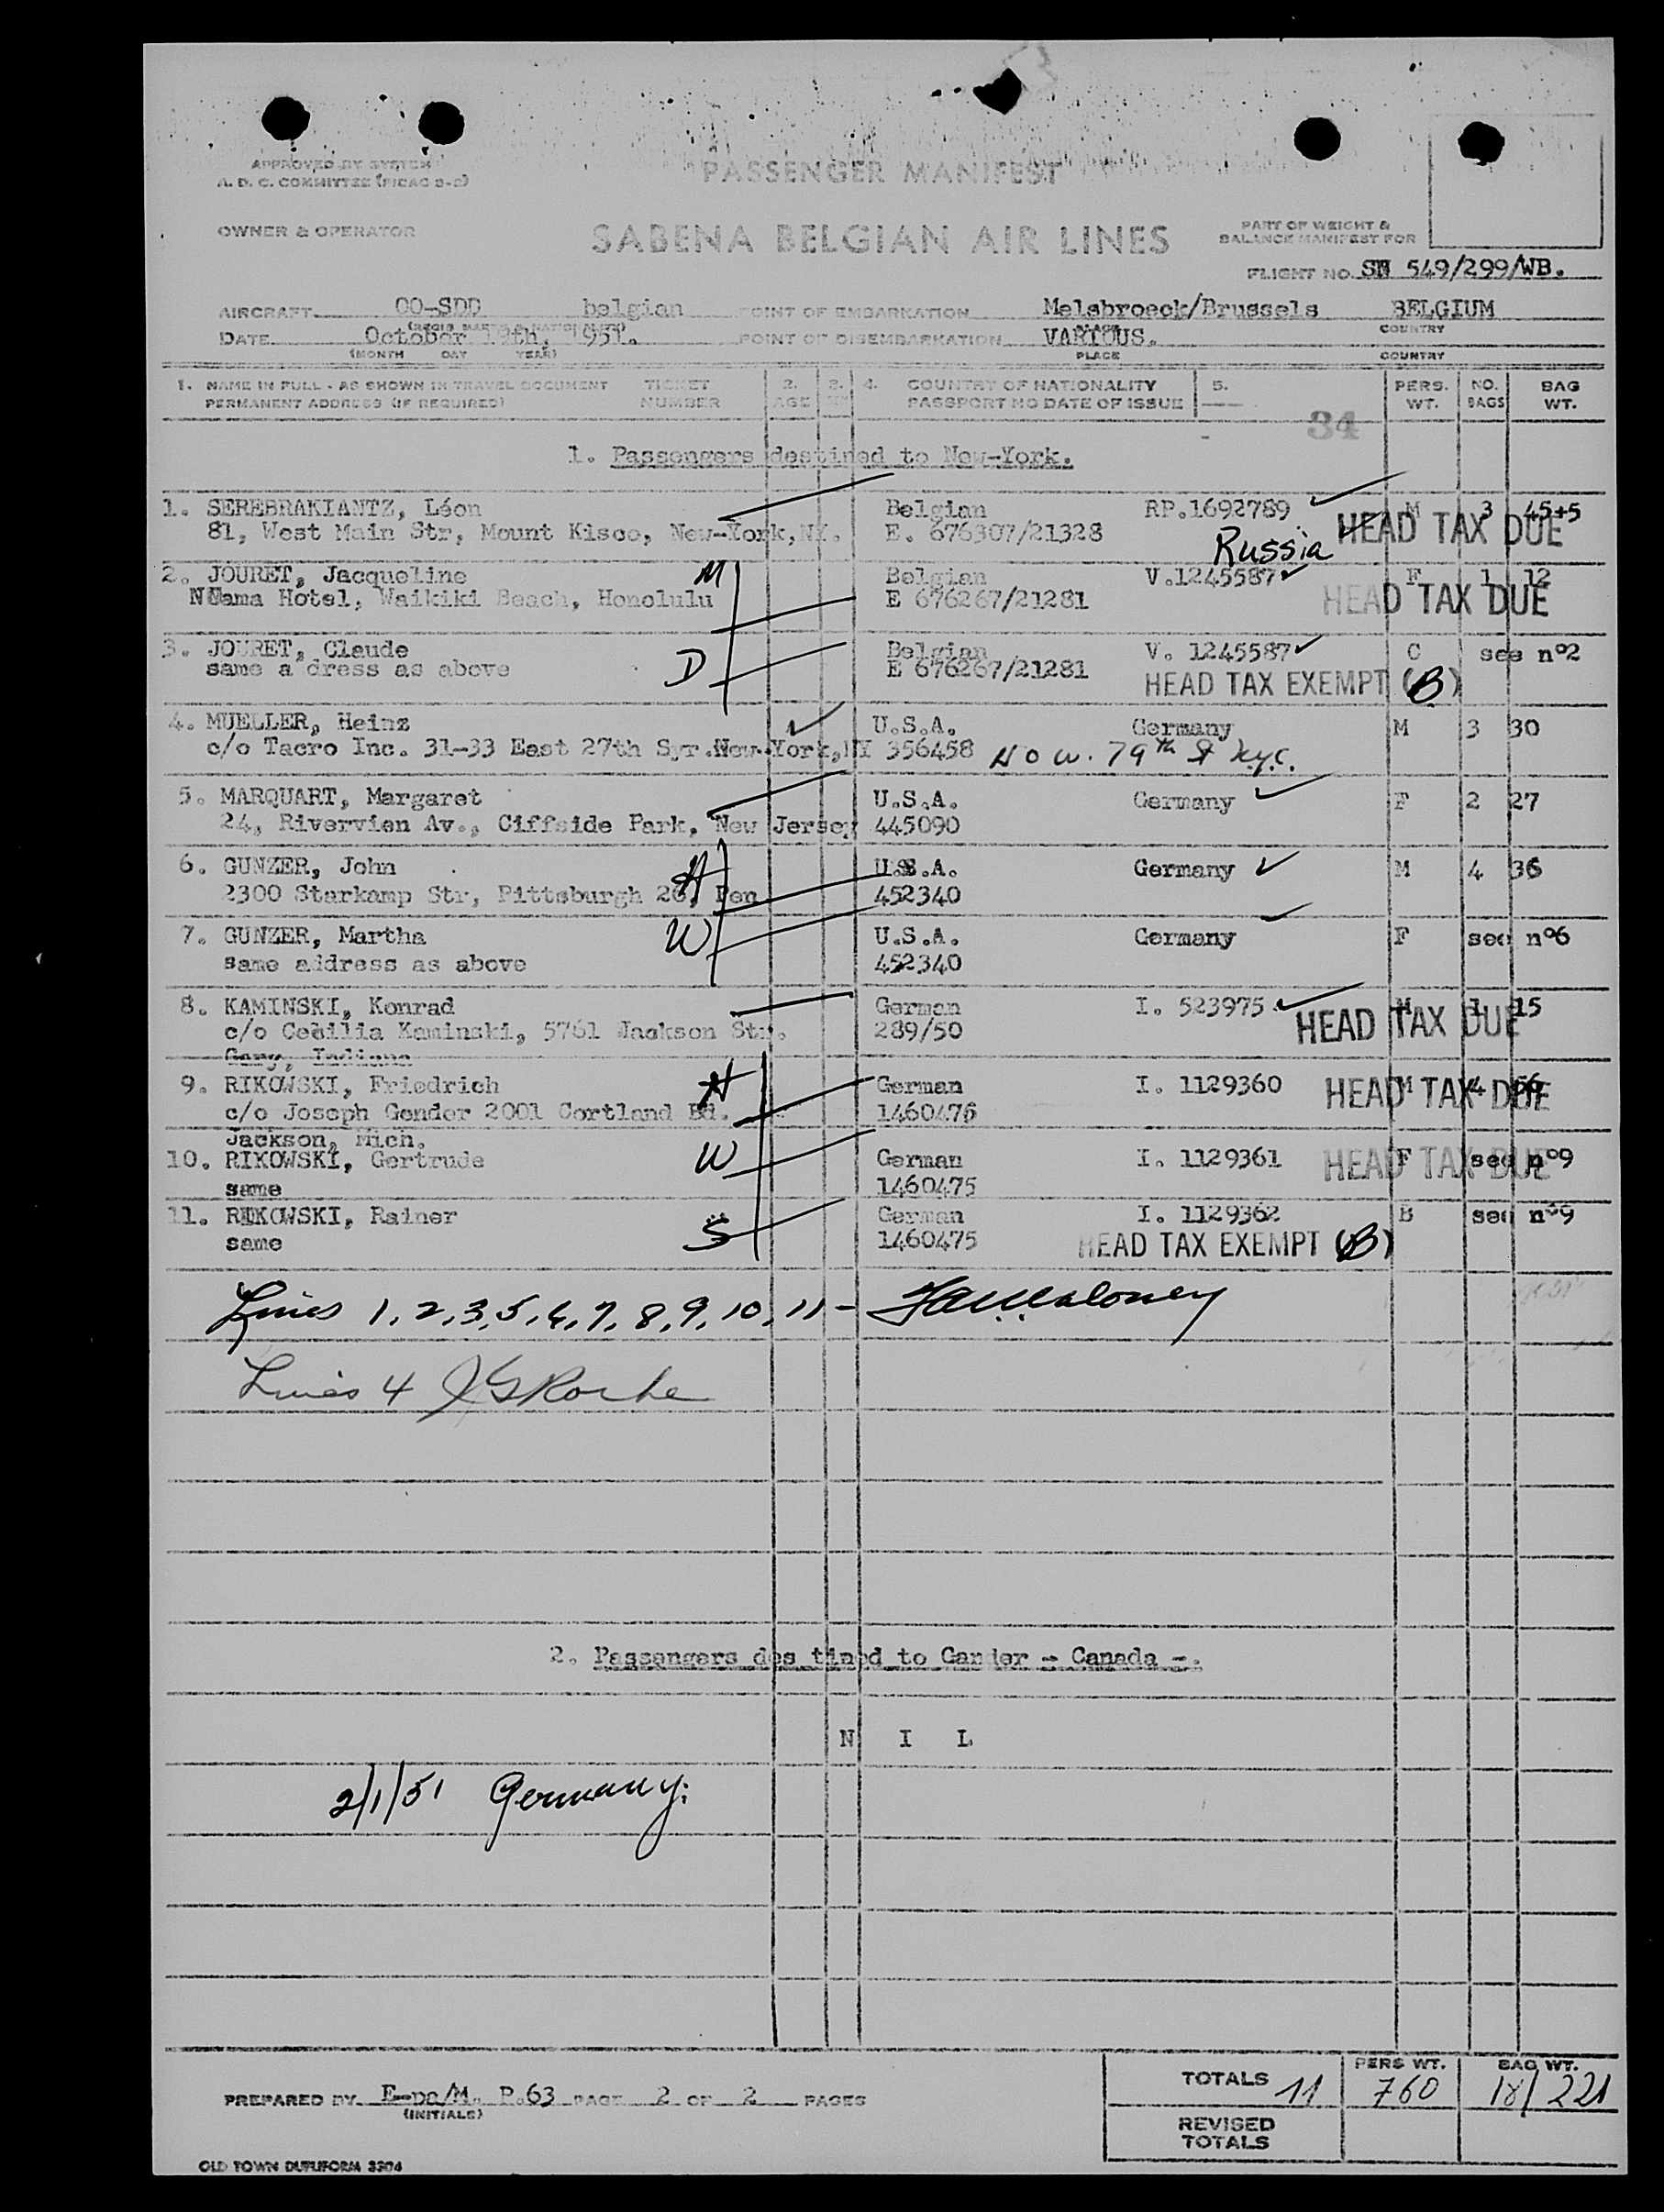 APPROVED BY SYSTEM
A. D. C. COMMITTEE (FICAC 9-2)
PASSENGER MANIFEST
OWNER & OPERATOR
SABENA BELGIAN AIR LINES
PART OF WEIGHT &
BALANCE MANIFEST FOR
FLIGHT NO. SN 549/299/WB.
AIRCRAFT OO-SDD belgian POINT OF EMBARKATION Melsbroeck/Brussels BELGIUM
DATE October 19th, 1951. POINT OF DISEMBARKATION VARIOUS.
PLACE COUNTRY
(MONTH DAY YEAR) PLACE COUNTRY
1. NAME IN FULL - AS SHOWN IN TRAVEL DOCUMENT TICKET 2. 3. 4. COUNTRY OF NATIONALITY 5. PERS. NO. BAG
PERMANENT ADDRESS (IF REQUIRED) NUMBER AGE PASSPORT NO DATE OF ISSUE WT. BAGS WT.
34
1. Passengers destined to New-York.
1. SEREBRAKIANTZ, Léon Belgian RP.1692789 M 3 45+5
81, West Main Str, Mount Kisco, New-York, NY. E. 676307/21328 Russia HEAD TAX DUE
2. JOURET, Jacqueline M Belgian V.1245587 F 1 12
Nama Hotel, Waikiki Beach, Honolulu E 676267/21281 HEAD TAX DUE
3. JOURET, Claude Belgian V. 1245587 C see n°2
same a dress as above D E 676267/21281 HEAD TAX EXEMPT (B)
4. MUELLER, Heinz U.S.A. Germany M 3 30
c/o Tacro Inc. 31-33 East 27th Syr. New-York, NY 356458 W. 79th St N.Y.C.
5. MARQUART, Margaret U.S.A. Germany F 2 27
24, Rivervien Av., Ciffside Park, New Jersey 445090
6. GUNZER, John H U.S.A. Germany M 4 36
2300 Starkamp Str, Pittsburgh 26, Pen 452340
7. GUNZER, Martha W U.S.A. Germany F see n°6
same address as above 452340
8. KAMINSKI, Konrad German I. 523975 M 1 15
c/o Cecilia Kaminski, 5761 Jackson Str. 289/50 HEAD TAX DUE
Gary, Indiana
9. RIKOWSKI, Friedrich H German I. 1129360 HEAD TAX DUE M 4 56
c/o Joseph Gendor 2001 Cortland Bd. 1460476
Jackson, Mich.
10. RIKOWSKI, Gertrude W German I. 1129361 HEAD TAX DUE F see n°9
same 1460475
11. RIKOWSKI, Rainer S German I. 1129362 B see n°9
same 1460475 HEAD TAX EXEMPT (B)
Lines 1, 2, 3, 5, 6, 7, 8, 9, 10, 11 - Maloney
Lines 4 JG Roche
2. Passengers des tined to Gander - Canada -.
N I L
2/1/51 Germany.
TOTALS 11 PERS WT. 760 BAG WT. 18/221
PREPARED BY E-pa/M. P.63 PAGE 2 OF 2 PAGES
(INITIALS)
REVISED
TOTALS
OLD TOWN DUPLIFORM 3304